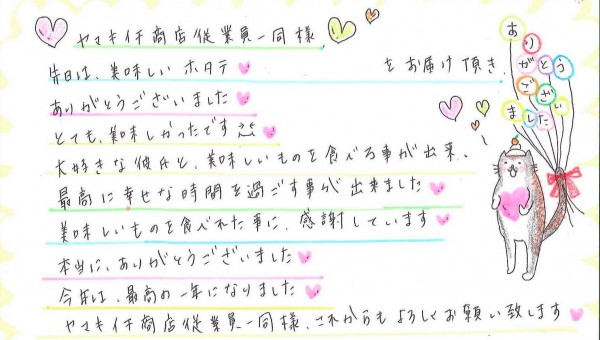 ヤマキイチ商店従業員一同様
先日は、美味しいホタテ をお届け頂き
ありがとうございました
とても、美味しかったです
大好きな彼氏と、美味しいものを食べる事が出来、
最高に幸せな時間を過ごす事が出来ました
美味しいものを食べれた事に、感謝しています
本当に、ありがとうございました
今年は、最高の一年になりました
ヤマキイチ商店従業員一同様、これからもよろしくお願い致します
ありがとうございました